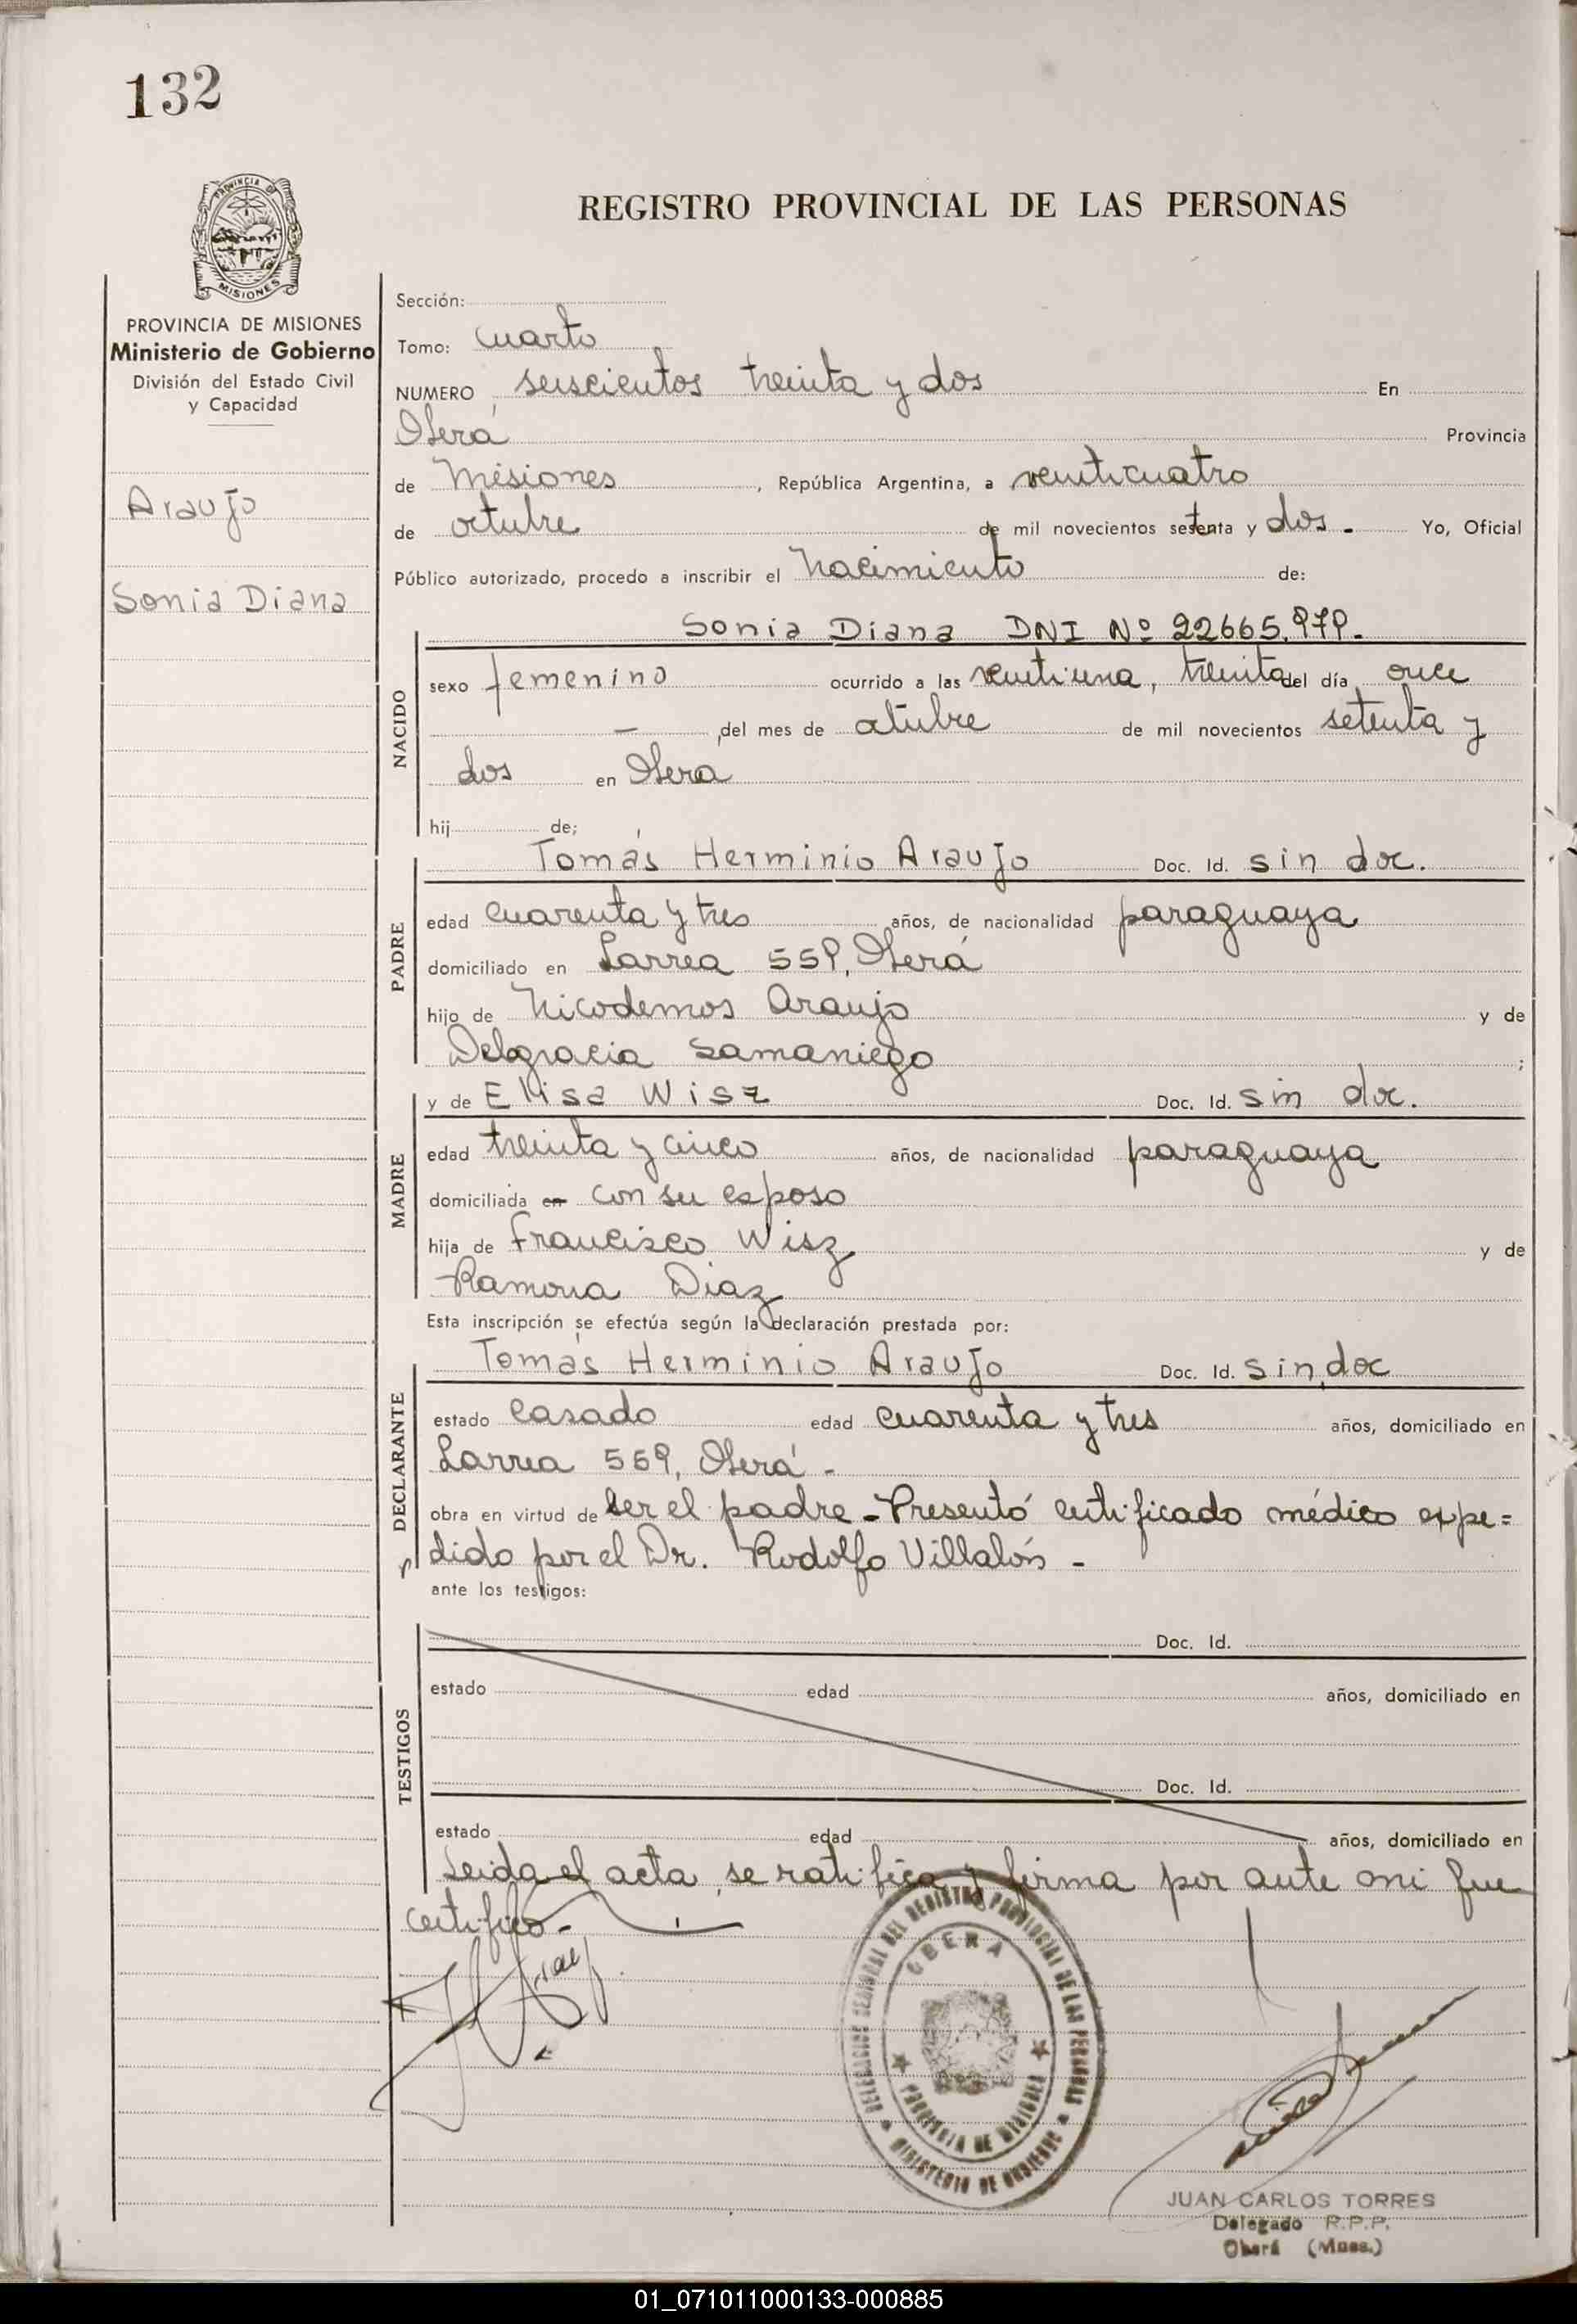 132
PROVINCIA DE
MISIONES
REGISTRO PROVINCIAL DE LAS PERSONAS
PROVINCIA DE MISIONES
Ministerio de Gobierno
División del Estado Civil
y Capacidad
Araujo
Sonia Diana
Sección:
Tomo: Cuarto
NUMERO seiscientos treinta y dos En
Oberá Provincia
de Misiones, República Argentina, a veinticuatro
de octubre de mil novecientos setenta y dos. - Yo, Oficial
Público autorizado, procedo a inscribir el nacimiento de:
NACIDO
Sonia Diana DNI Nº 22665.979.
sexo femenino ocurrido a las veintiuna, treinta del día once
— del mes de octubre de mil novecientos setenta y
dos en Oberá
hij de;
PADRE
Tomás Herminio Araujo Doc. Id. sin doc.
edad cuarenta y tres años, de nacionalidad paraguaya
domiciliado en Larrea 559, Oberá
hijo de Nicodemos Araujo y de
Delgracia Samaniego ;
MADRE
y de Elisa Wisz Doc. Id. sin doc.
edad treinta y cinco años, de nacionalidad paraguaya
domiciliada en con su esposo
hija de Francisco Wisz y de
Ramona Diaz
Esta inscripción se efectúa según la declaración prestada por:
DECLARANTE
Tomás Herminio Araujo Doc. Id. sin doc
estado casado edad cuarenta y tres años, domiciliado en
Larrea 559, Oberá -
obra en virtud de ser el padre - Presentó certificado médico expe=
dido por el Dr. Rodolfo Villalón -
ante los testigos:
TESTIGOS
Doc. Id.
estado edad años, domiciliado en
Doc. Id.
estado edad años, domiciliado en
Leida el acta, se ratifica y firma por ante mi que
certifico -
DELEGACION SECCIONAL DEL REGISTRO PROVINCIAL DE LAS PERSONAS
OBERA
PROVINCIA DE MISIONES
MINISTERIO DE GOBIERNO
JUAN CARLOS TORRES
Delegado R.P.P.
Oberá (Mnes.)
01_071011000133-000885